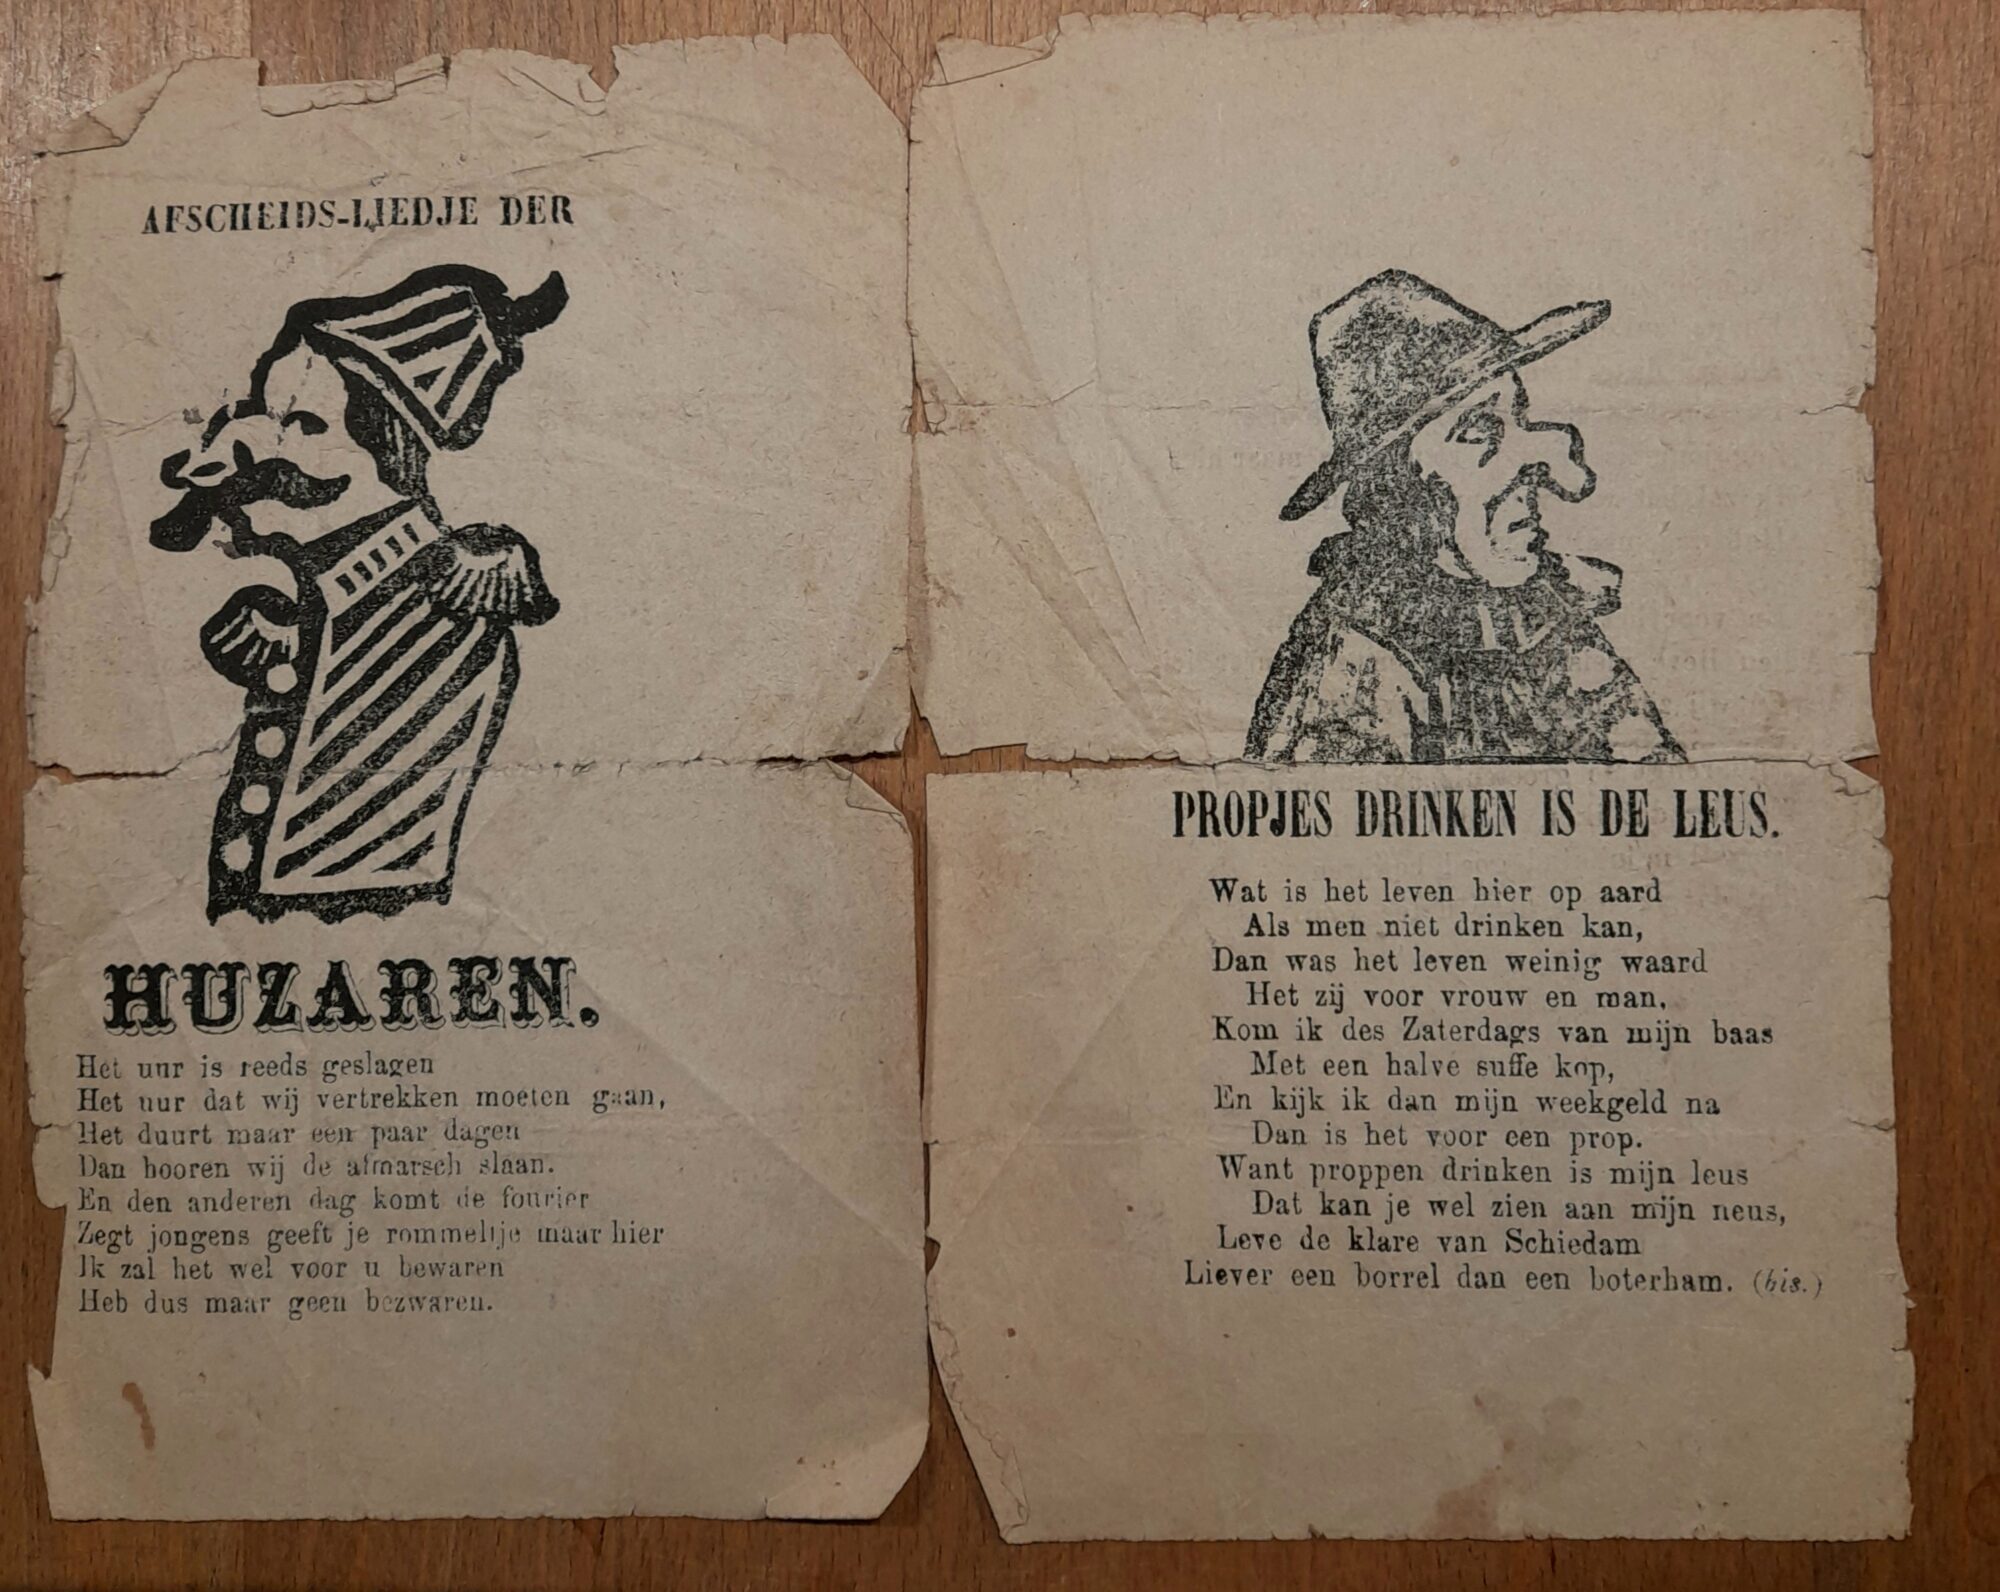 AFSCHEIDS-LIEDJE DER
HUZAREN.
Het uur is reeds geslagen
Het uur dat wij vertrekken moeten gaan,
Het duurt maar een paar dagen
Dan hooren wij de afmarsch slaan.
En den anderen dag komt de fourier
Zegt jongens geeft je rommeltje maar hier
Ik zal het wel voor u bewaren
Heb dus maar geen bezwaren.
PROPJES DRINKEN IS DE LEUS.
Wat is het leven hier op aard
Als men niet drinken kan,
Dan was het leven weinig waard
Het zij voor vrouw en man,
Kom ik des Zaterdags van mijn baas
Met een halve suffe kop,
En kijk ik dan mijn weekgeld na
Dan is het voor een prop.
Want proppen drinken is mijn leus
Dat kan je wel zien aan mijn neus,
Leve de klare van Schiedam
Liever een borrel dan een boterham. (bis.)